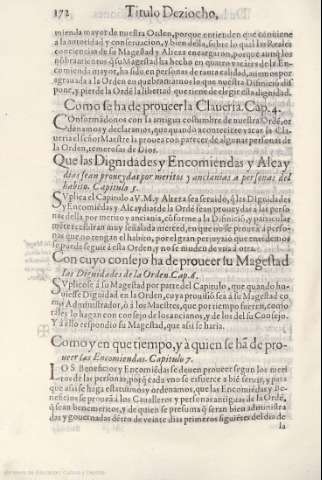 172 Titulo Deziocho,
mienda mayor de nuestra Orden, porque entienden que conuiene
a la autoridad y conseruacion, y bien della, sobre lo qual los Reales
conciencias de su Magestad y Alteza encargaron, porque aunq̃ los
nõbramientos q̃ su Magestad ha hecho en quatro vacãtes de la En-
comienda mayor, ha sido en personas de tanta calidad, auemos por
agrauada a la Orden en quebrantarnos lo que nuestra Difinicio dis
pone, y pierde la Ordẽ la libertad que tiene de elegir esta dignidad.
Como se ha de proueer la Claueria. Cap. 4.
COnformãdonos con la antigua costumbre de nuestra Ordẽ, or
dànamos y declaramos, que quando aconteciere vacar la Cla
ueria el señor Maestre la prouea con parecer de algunas personas de
la Orden, temerosas de Dios.
Que las Dignidades y Encomiendas y Alcay
dias sean proueydas por meritos y ancianias a personas del
habito. Capitulo 5.
SVplica el Capitulo a V.M. y Alteza sea seruido, q̃ las Dignidades
y Encomiẽdas y Alcaydias de la Ordẽ sean proueydas a las perso-
nas della por merito y anciania, cõforme a la Difinició, y particular
mẽte
que no tengan el habito, por el gran perjuyzio que
segunda seguiria a esta Orden, y no se mude en renta a otra.
Con cuyo consejo ha de proueer su Magestad
las Dignidades de la Orden. Cap. 6.
SVplicose a su Magestad por parte del Capitulo, que quando hu-
uiesse Dignidad en la Orden, cuya prouisió sea à su Magestad co
mo Administrador, ò a los Maestres, que por tiempo fueren, consul
tarles lo hagan con consejo de los ancianos, y de los del su Consejo.
Y a ello respondio su Magestad, que assi se haria.
Como y en que tiempo, y à quien se hã de pro-
ueer las Encomiendas. Capitulo 7.
LOS Beneficios y Encomiẽdas se deuen proueer segun los meri
tos de las personas, porq̃ cada vno se esfuerce a biẽ seruir, y para
que assi se haga estatuimos y ordenamos, que las Encomiẽdas y Be-
neficios se prouea à los Caualleros y personas antiguas de la Ordẽ,
q̃ sean benemeritos, y de quien se presuma q̃ seran bien administra
das y gouernadas dẽtro de veinte dias primeros siguiẽtes del dia de
la